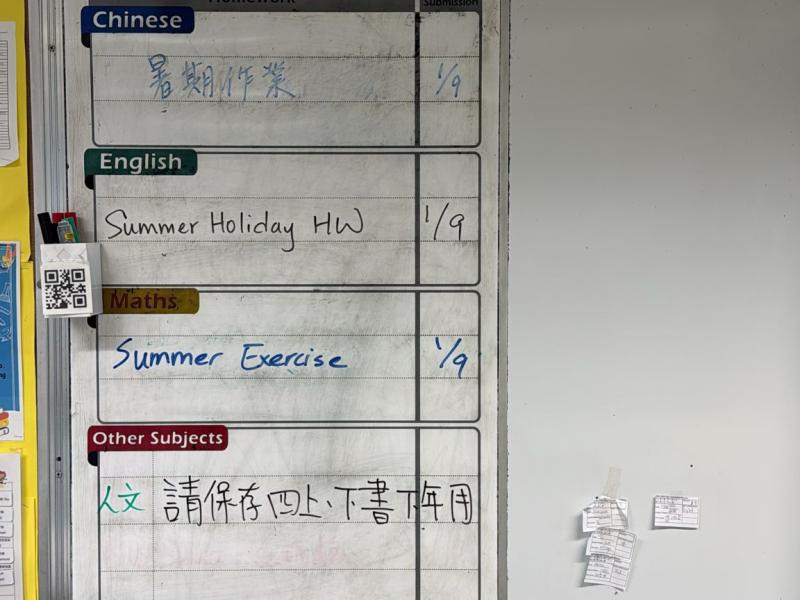 Homework
Submission
Chinese
暑期作業
1/9
English
Summer Holiday HW
1/9
Maths
Summer Exercise
1/9
Other Subjects
人文 請保存四上、下書下年用